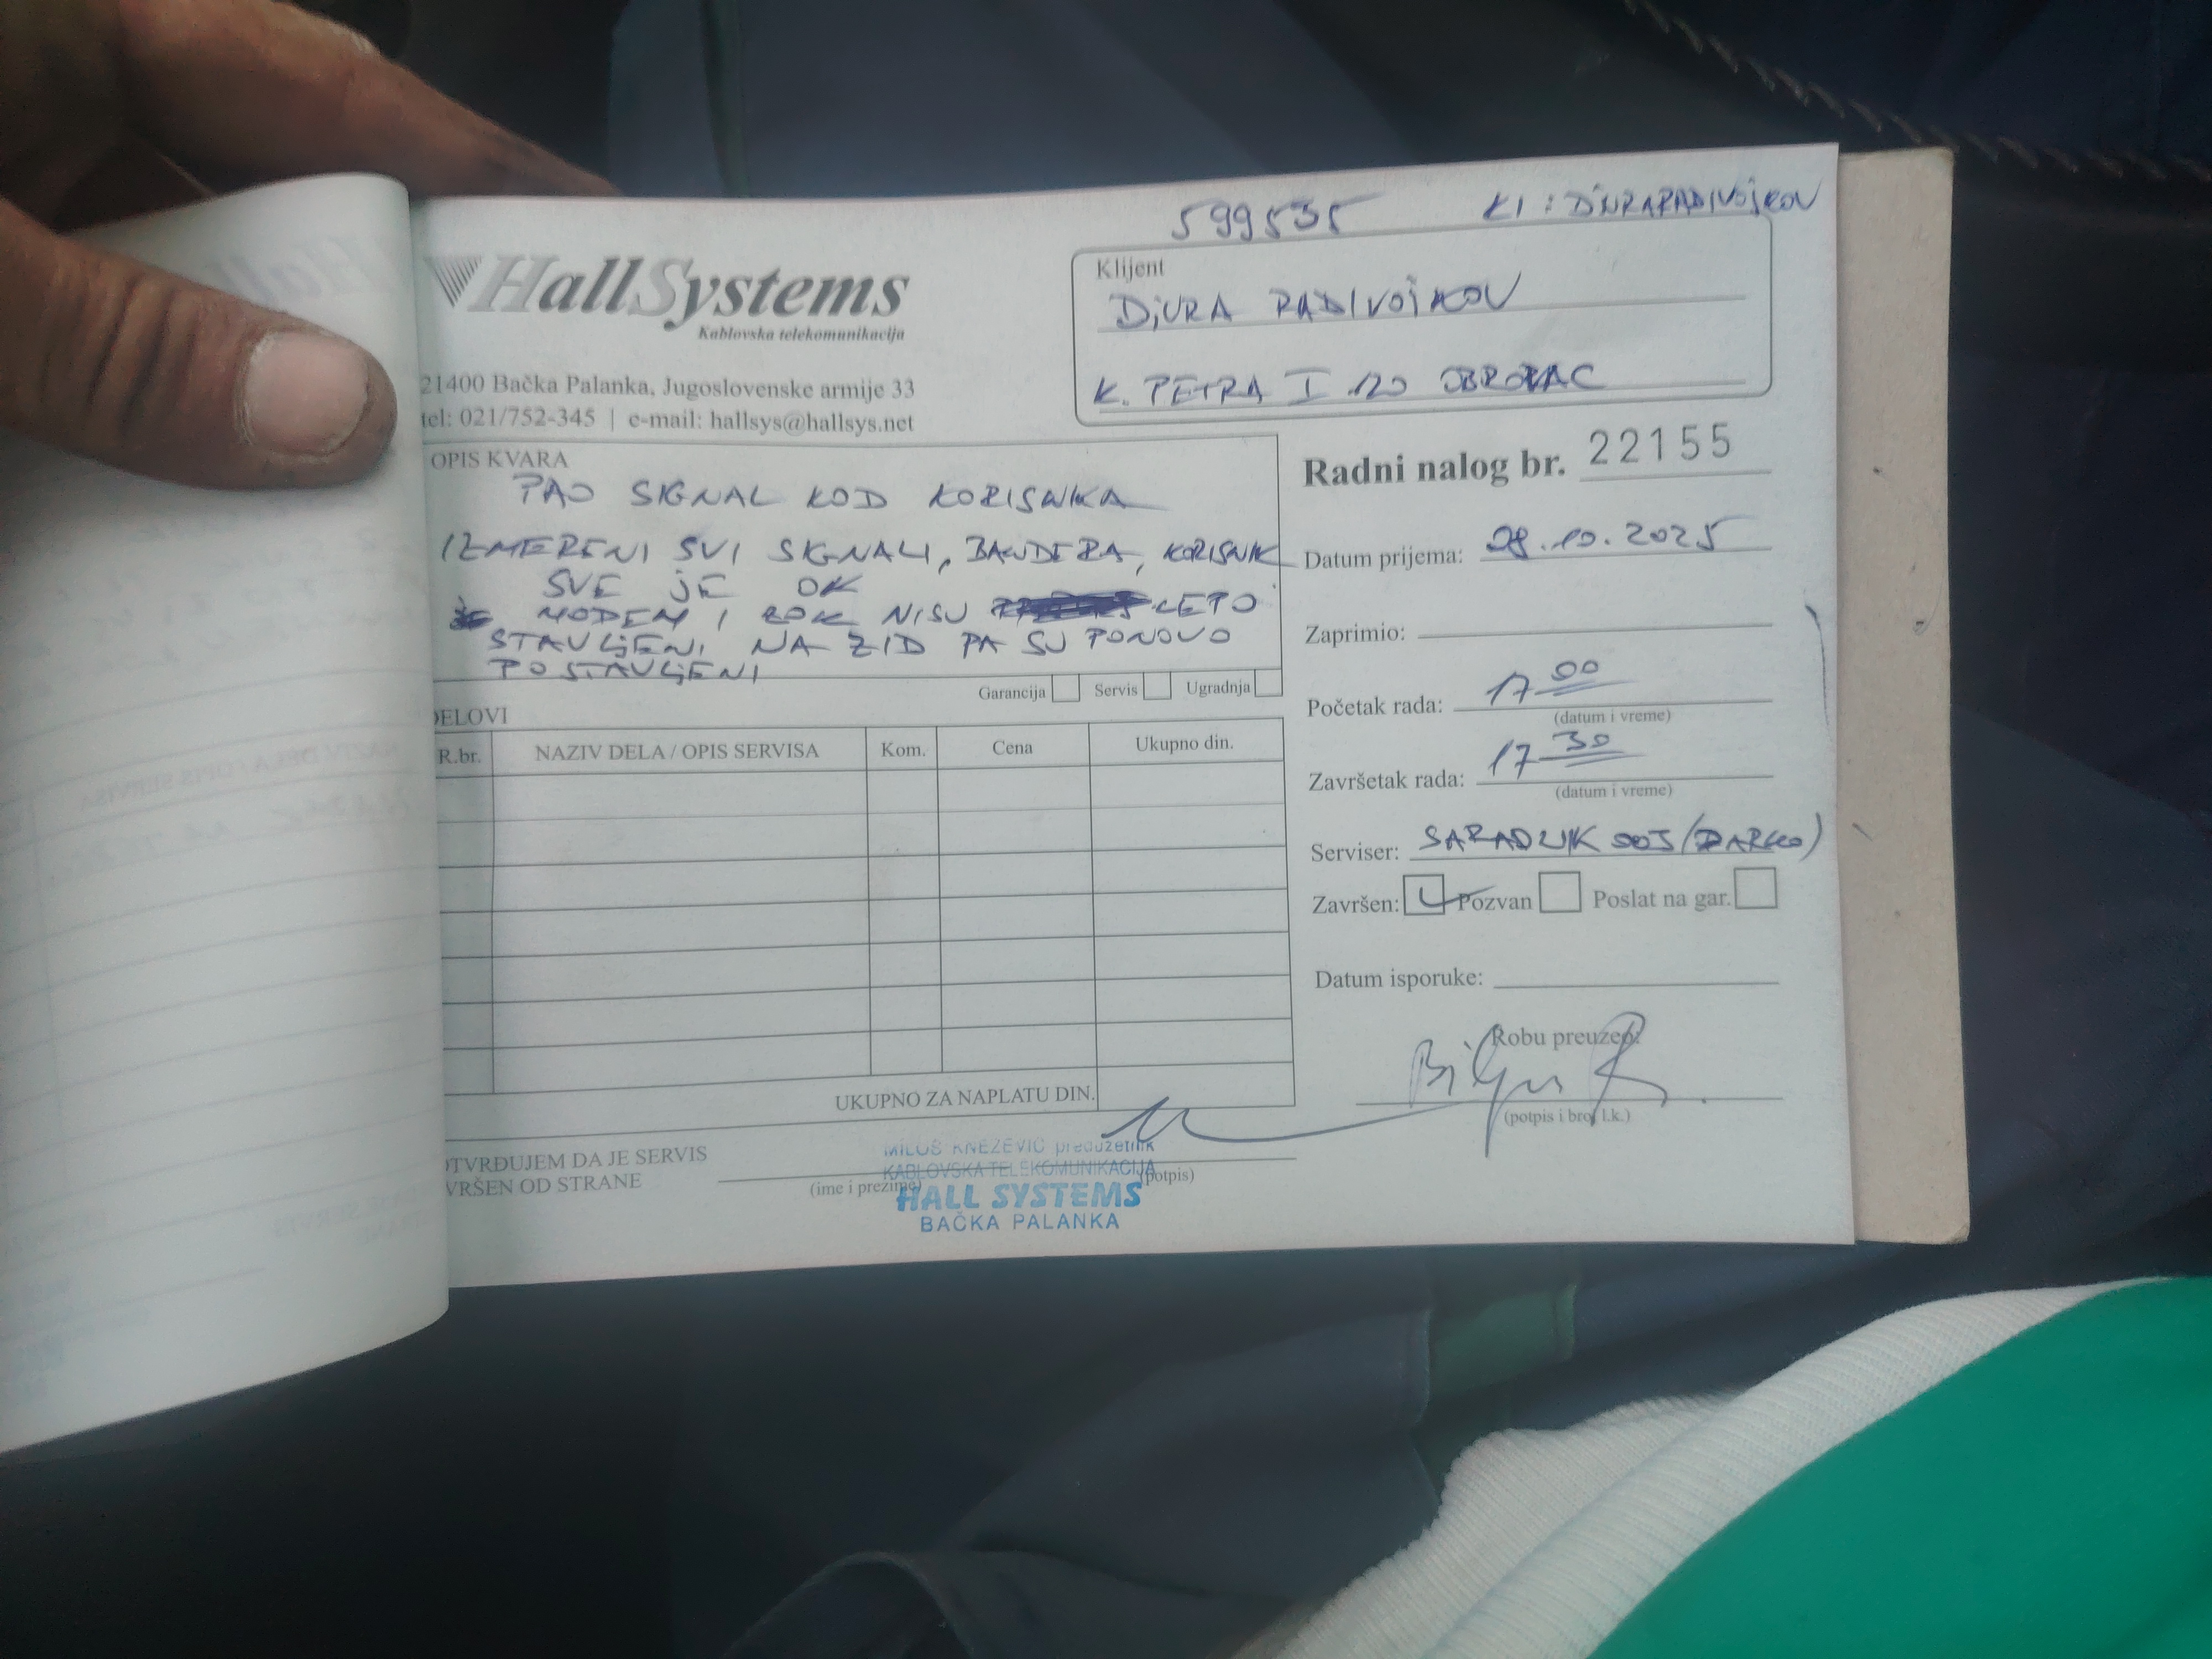 599535 KI : DJURARADIVOJKOV
HallSystems
Kablovska telekomunikacija
21400 Bačka Palanka, Jugoslovenske armije 33
tel: 021/752-345 | e-mail: hallsys@hallsys.net
Klijent
DJURA RADIVOJKOV
K. PETRA I 120 OBROVAC
Radni nalog br. 22155
OPIS KVARA
PAO SIGNAL KOD KORISNIKA
IZMERENI SVI SIGNALI, BANDERA, KORISNIK
SVE JE OK
MODEM I BOK NISU LEPO
STAVLJENI NA ZID PA SU PONOVO
POSTAVLJENI
Garancija Servis Ugradnja
Datum prijema: 28.10.2025
Zaprimio:
Početak rada: 17 00
(datum i vreme)
Završetak rada: 17 30
(datum i vreme)
Serviser: SARADNIK 005 (DARKO)
Završen: Pozvan Poslat na gar.
Datum isporuke:
Robu preuzeo:
(potpis i broj l.k.)
DELOVI
R.br. NAZIV DELA / OPIS SERVISA Kom. Cena Ukupno din.
UKUPNO ZA NAPLATU DIN.
OTVRĐUJEM DA JE SERVIS
VRŠEN OD STRANE
(ime i prezime) (potpis)
MILOŠ KNEŽEVIĆ preduzetnik
KABLOVSKA TELEKOMUNIKACIJA
HALL SYSTEMS
BAČKA PALANKA